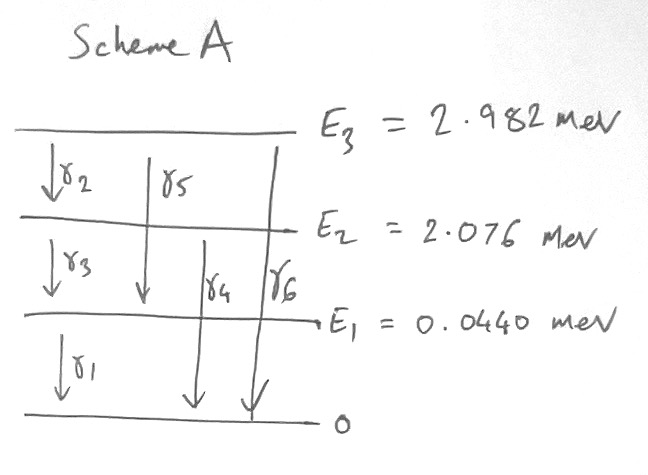 Scheme A
E3 = 2.982 MeV
γ2 γ5
E2 = 2.076 MeV
γ3 γ4 γ6
E1 = 0.0440 MeV
γ1
0